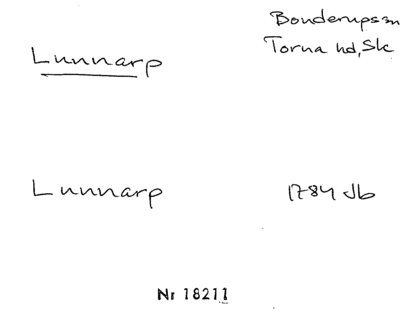 Bonderups sn
Lunnarp
Torna hd, Sk
Lunnarp
1784 Jb
Nr 18211